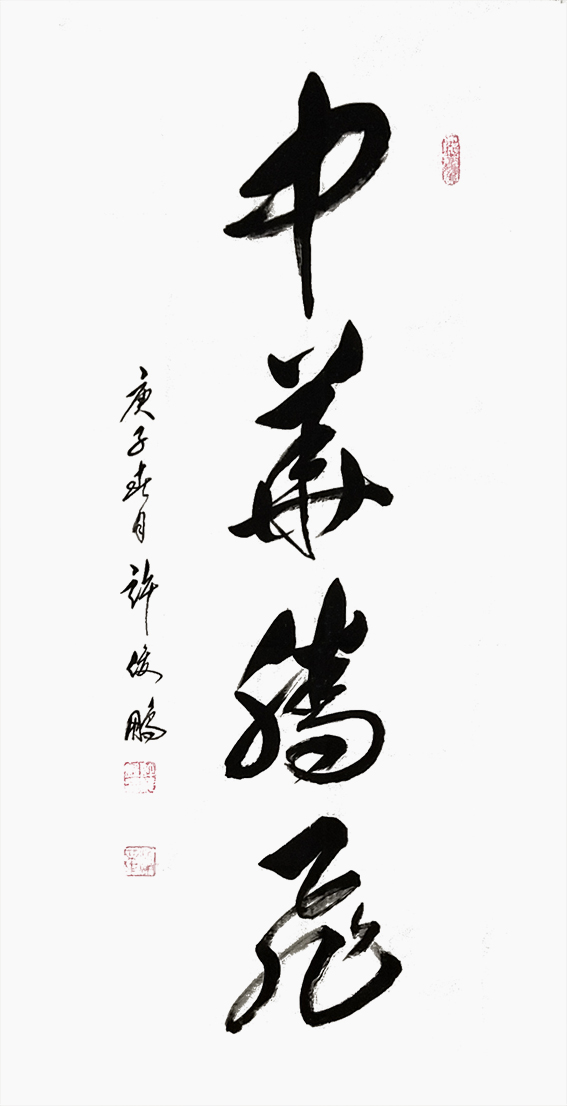 中華騰飛
庚子春月許俊鵬